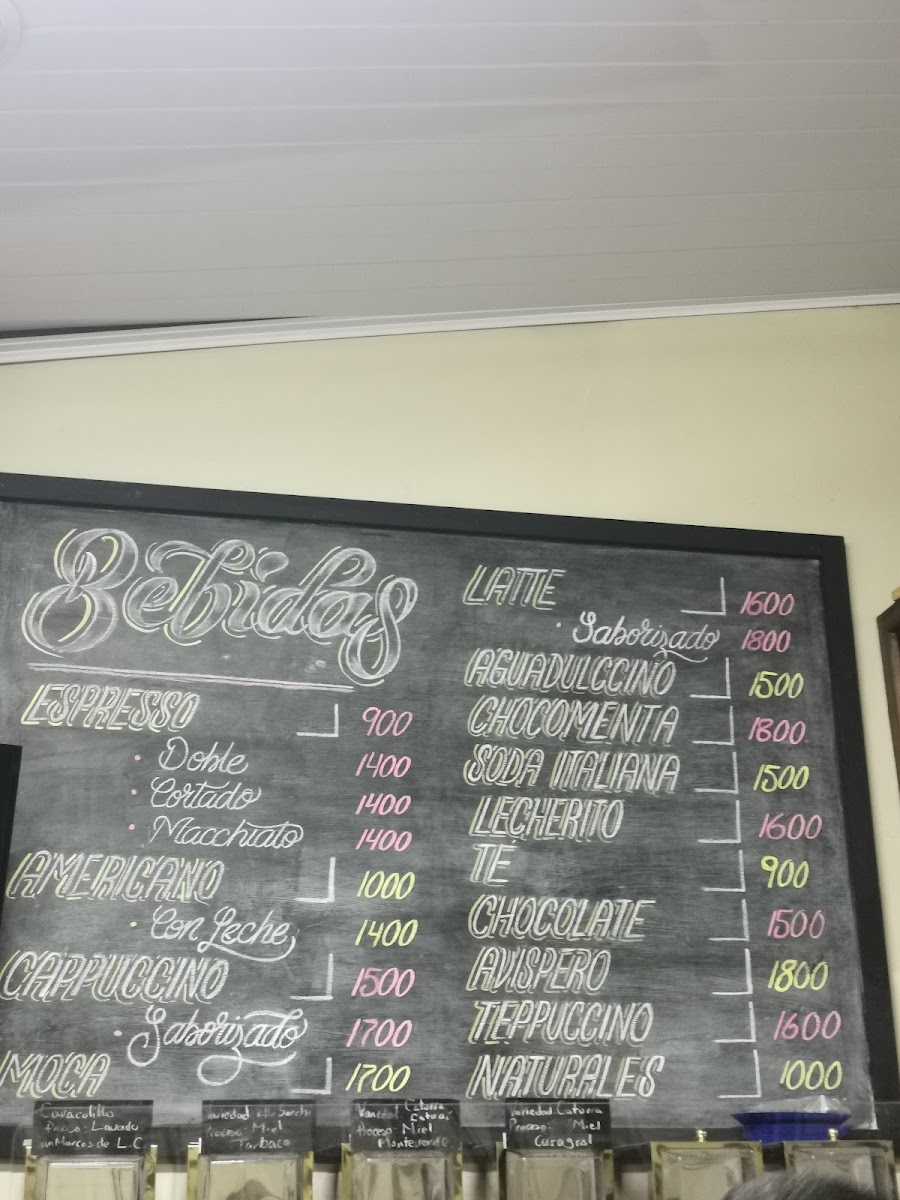 Bebidas
ESPRESSO 900
Doble 1400
Cortado 1400
Macchiato 1400
AMERICANO 1000
Con Leche 1400
CAPPUCCINO 1500
Saborizado 1700
MOCA 1700
LATTE 1600
Saborizado 1800
AGUADULCCINO 1500
CHOCOMENTA 1800
SODA ITALIANA 1500
LECHERITO 1600
TÉ 900
CHOCOLATE 1500
AVISPERO 1800
TEPPUCCINO 1600
NATURALES 1000
Caracolillo
Proceso: Lavado
San Marcos de L.C.
Variedad: Villa Sarchi
Proceso: Miel
Tarbaca
Variedad: Caturra
Catuaí
Proceso: Miel
Monteverde
Variedad: Caturra
Proceso: Miel